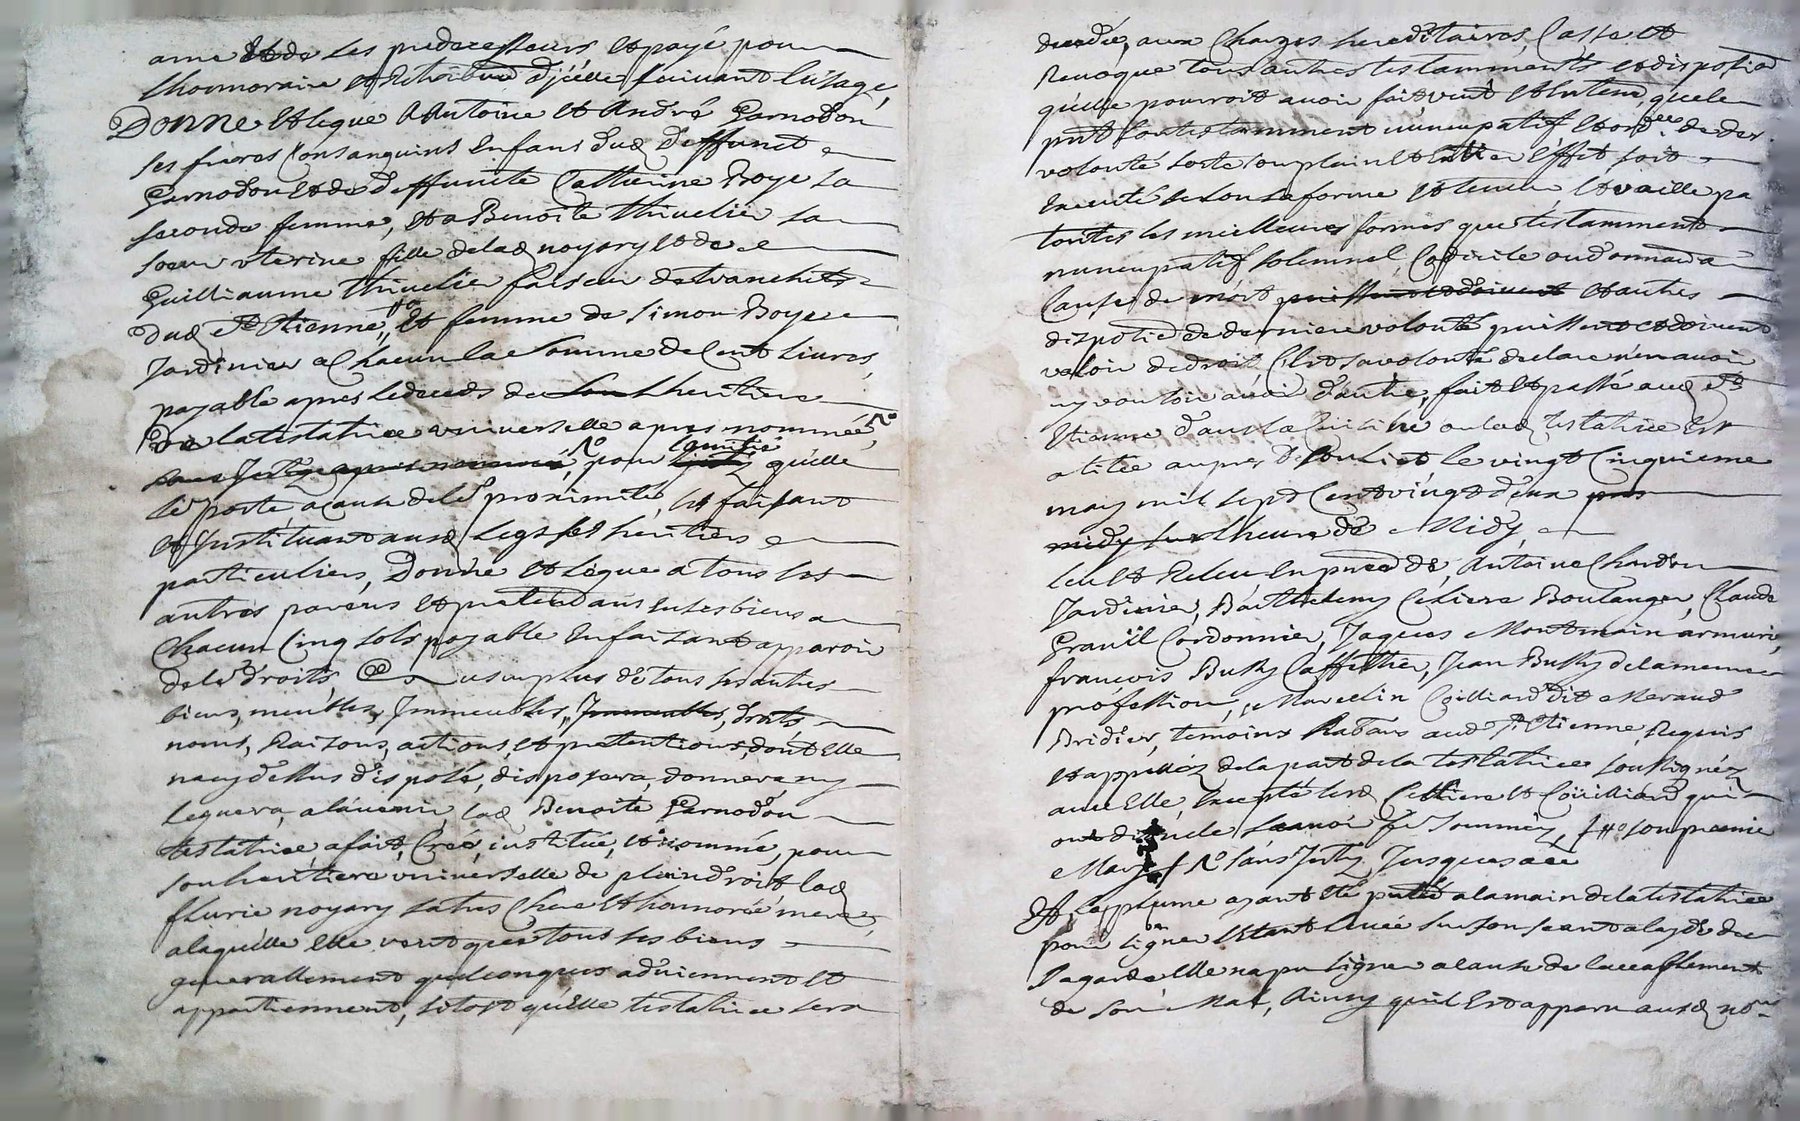 ame et de ses predecesseurs et payé pour
lhonnoraire et retribu[on] d'jcelle suivant lusage,
Donne et legue a Antoine et André Garnodon
ses freres Consanguins Enfans dud deffunct
Garnodon et de deffuncte Catherine Boye sa
seconde femme, et a Benoite thivelier sa
soeur uterine fille de lad noyary et de
Guilliaume thivelier faiseur de tranchets
dud st Etienne, et femme de Simon Boye
Jardinier a Chacun la somme de Cent Livres,
payable apres le deceds de son heritiere
de la testatrice universelle apres nommée
pour lamitié quelle
leur porte, a cause de lr proximité, les faisant
et Jnstituant ausd legs ses heritiers
particuliers, Donne et Legue a tous ses
autres parens et pretendans en ses biens a
Chacun Cinq sols payable En faizant apparoir
de lrs droits, Et au surplus de tous ses autres
biens, meubles, Jmmeubles, Jmmeubles, droits
noms, Raizons, actions, et pretentions, dont Elle
na cy dessus dispozé, disposera, donnera, ny
leguera, a lavenir, lad Benoite Garnodon
testatrice, a fait, Creé, institué, et nommé, pour
son heritiere universelle de plein droit lad
flurie noyary sa tres Chere et honnorée mere,
a laquelle Elle veut que tous ses biens
generallement quelconques adviennent et
appartiennent, sitost quElle testatrice sera
decedée, aux Charges hereditaires, Casse et
Revoque tous autres testamments et disposi[on]
quelle pourroit avoir fait, veut et Entend, que le
pnt son testamment nuncupatif et ord[ce] de der
volonté sorte son plain et Entier Effet soit
Executé selon sa forme et teneur, et vaille pa
toutes les meilleures formes que testamment
nuncupatif solemnel, Codicile ou donna[on] a
Cause de mort puissent et doivent et autres
dispoti[on] de derniere volonté puissent et doivent
valoir de droit, C'est sa volonté declare n'en avoir
ny vouloir avoir d'autre, fait et passé aud st
Etienne dans la ou lad testatrice Est
alitée aupres d le vingt Cinquieme
may mil sept Cent vingt deux pres
midy sur lheure de Midy,
leu et Releu En pnce de, Antoine Chardon
Jardinier, Barthelemy Celiere Boulanger, Claude
Gravil Cordonnier, Jaques Montmain armurie,
francois Bussy Caffettier, Jean Bussy de la meme
profession, Marcelin Coüilliard dit Meraud
Bridier, temoins habans aud st Etienne, Requis
et appellez de la part de la testatrice soussignez
avec Elle, Excepté lesd Cellière et Coüilliard qui
ont dit ne le scavoir de sommez, son premie
Mary sans Jusques a ce
Et la plume ayant eté portée a la main de la testatrice
pour signer Estant Levée sur son seant a layde de
sa garde Elle na pu signer a cause de laccablement
de son Mal, Ainsy quil Est apparu ausd no[re]